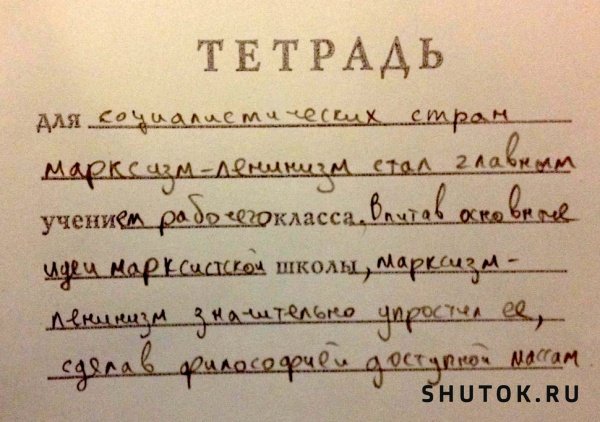 ТЕТРАДЬ
для социалистических стран
марксизм-ленинизм стал главным
учением рабочего класса. Впитав основные
идеи марксистской школы, марксизм-
ленинизм значительно упростил ее,
сделав философией доступной массам
SHUTOK.RU